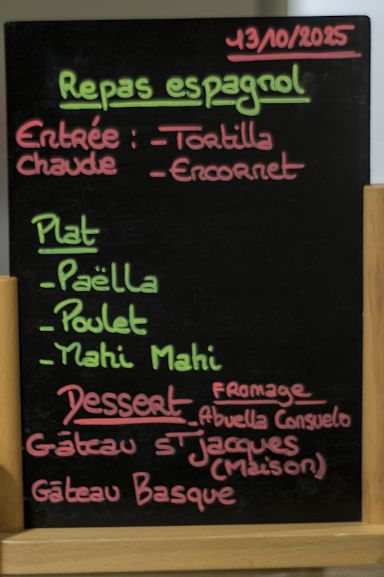 13/10/2025
Repas espagnol
Entrée : - Tortilla
Chaude - Encornet
Plat
- Paëlla
- Poulet
- Mahi Mahi
Dessert Fromage
- Abuella Consuelo
Gâteau ST jacques
(Maison)
Gâteau Basque